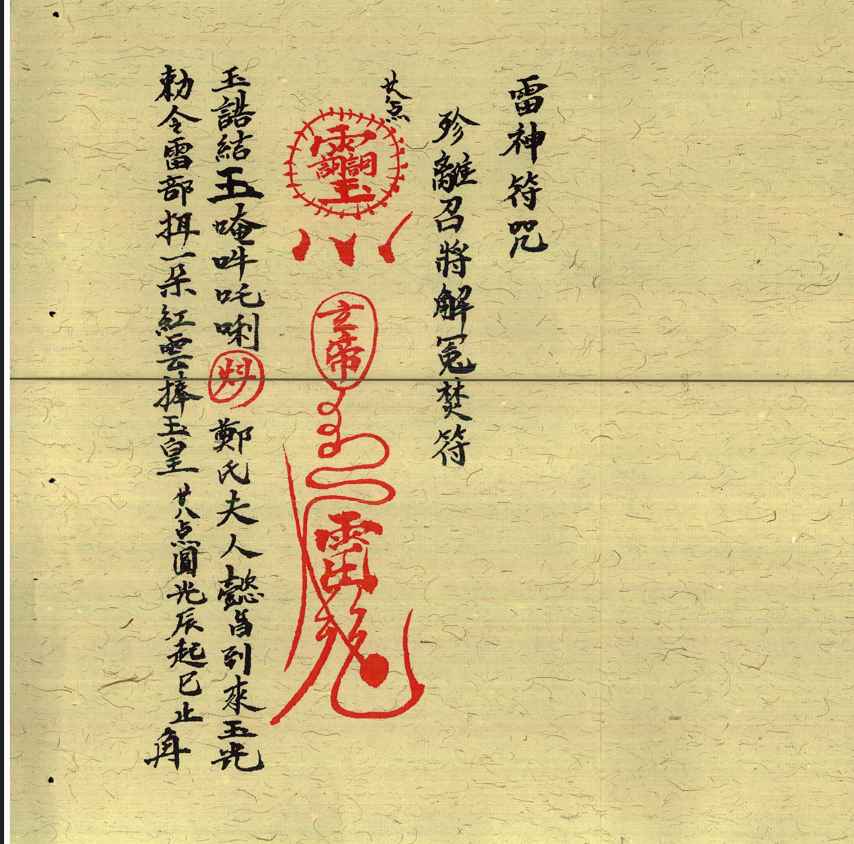 雷神符咒
珍離召將解冤焚符
廿八点
玄帝
雷
玉誥結玉唵吽吒唎
鄭氏夫人懿旨到來玉光
勅令雷部揖一朵紅雲捧玉皇
廿八点圓光辰起巳止再